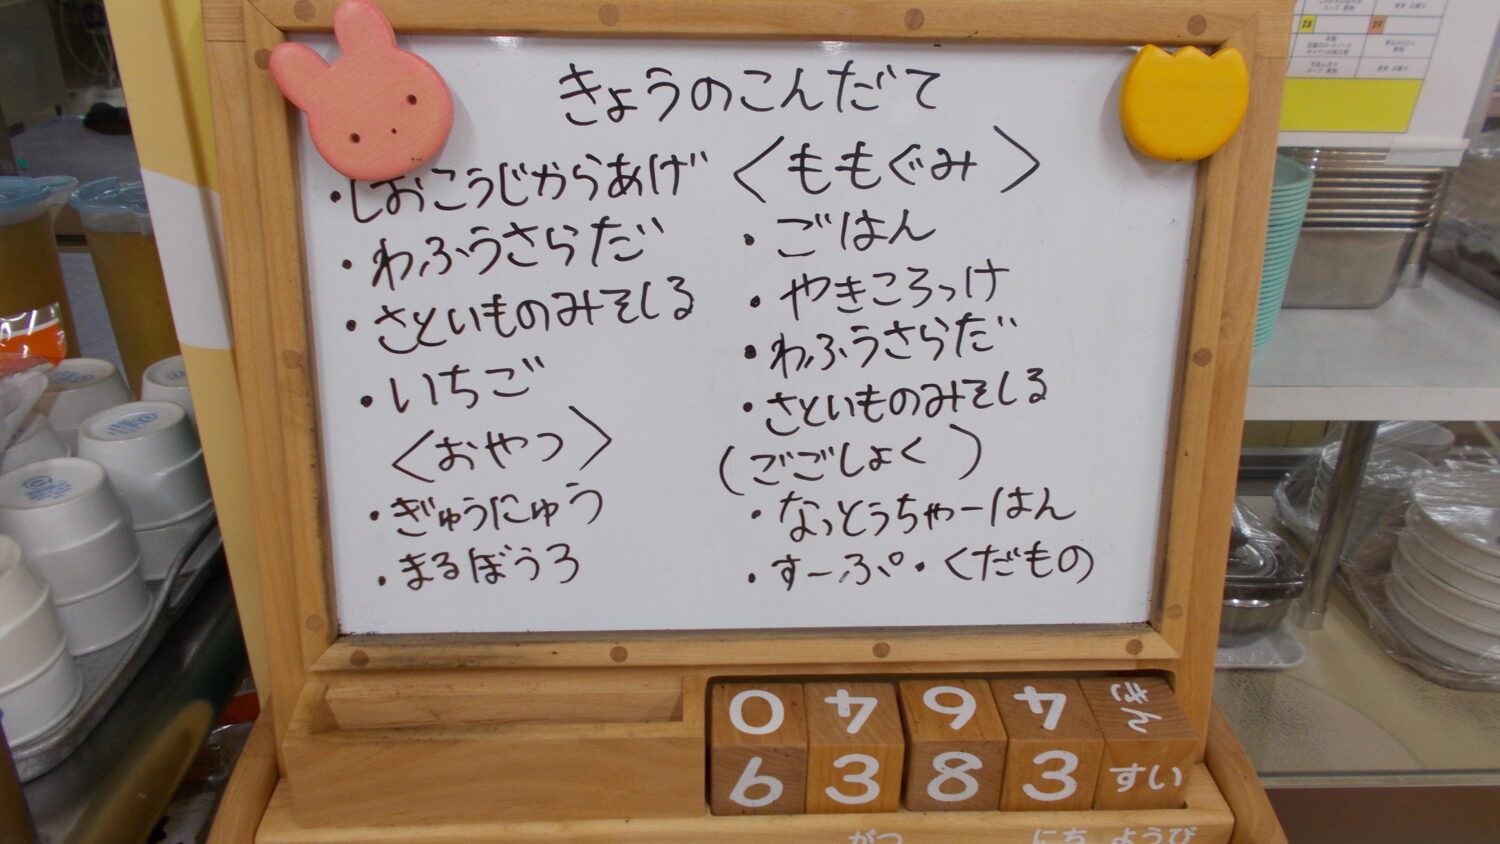 きょうのこんだて
・しおこうじからあげ
・わふうさらだ
・さといものみそしる
・いちご
〈おやつ〉
・ぎゅうにゅう
・まるぼうろ
〈ももぐみ〉
・ごはん
・やきころっけ
・わふうさらだ
・さといものみそしる
(ごごしょく)
・なっとうちゃーはん
・すーぷ・くだもの
0 4 6 4 きん
6 3 8 3 すい
がつ にち ようび
28
29